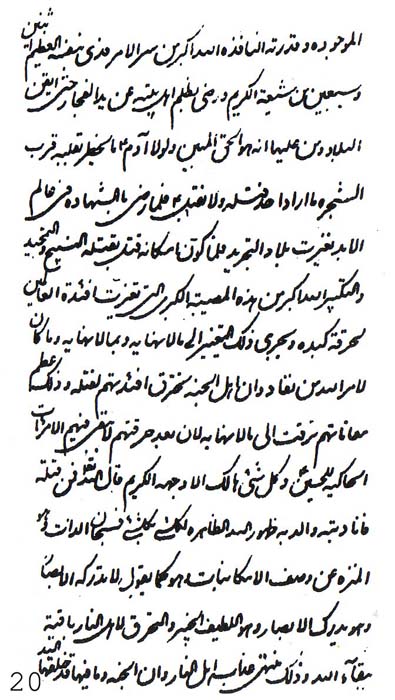 الموجوده وقدرته النافذه الله اكبر من سر الامر فدى بنفسه العظيم اثنين
وسبعين من شيعة الكريم ورضى بظلم اهل بيته عن يد الفجار حتى ايقن
البلاد ومن عليها انه هو الحق المبين ولولا آدم ع ما يخطر بقلبه قرب
الشجره ما اراد احد قتله فلما رضى بالشهاده فى عالم
الابد تغيرت بلاد التجريد فلما كون بامكانه قتل بقتله التسبيح والتمجيد
والتكبير الله اكبر من هذه المصيبة الكبرى التى تغيرت افئدة العالمين
لحرقة كبده ويجرى ذلك التغيير الى مالانهايه وبمالانهايه وما كان
لامر الله من نفاد وان اهل الجنه تحترق افئدتهم لقتله وذلك عظم
مقاماتهم ترقت الى مالانهايه لان بعد حرقتهم لا تبقى فيهم الا مرآت
الحاكيه للحسين ع وكل شئ هالك الا وجهه الكريم قال الله تعالى من قتلته
فانا ديته والديه ظهور الله الظاهره لكلشئ بكلشئ فسبحان الذات هو
المنزه عن وصف الامكانيات وهو كما يقول لا تدركه الابصار
وهو يدرك الابصار وهو اللطيف الخبير والتحرق لاهل النار باقية
ببقاء الله وذلك منتهى عذاب اهل النار وان الجنه وما فيها قد خلقها الله
20